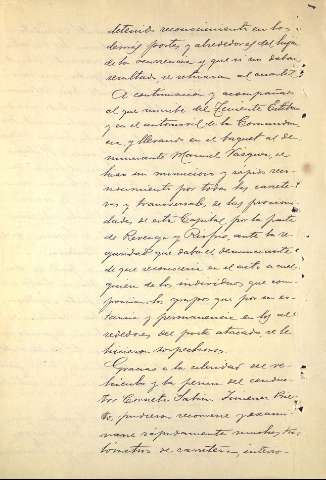 detenido reconocimiento en los
demás postes y alrededores del lugar
de la ocurrencia y que si no daban
resultado se retiraran al cuartel.
A continuacion y acompañado
al que suscribe del Teniente
y en el automovil de la Comandan
cia y llevando en el baquet al de-
nunciante Manuel Vazquez, se
hizo un minucioso y rápido reco-
nocimiento por todas las carrete-
ras y transversales, de las proximi-
dades de esta Capital por la parte
de y ante la se-
guridad que daba el denunciante
de que reconoceria en el acto a cual-
quiera de los individuos que com-
ponian los grupos que por su es-
tancia y permanencia en los alre-
dedores del poste atacado, se le
hicieron sospechosos.
Gracias a la celeridad del ve-
hiculo y la pericia del conduc-
tor Corneta Jimenez
pudieron recorrerse y exami-
narse rápidamente muchos ki-
lómetros de carretera, interro-